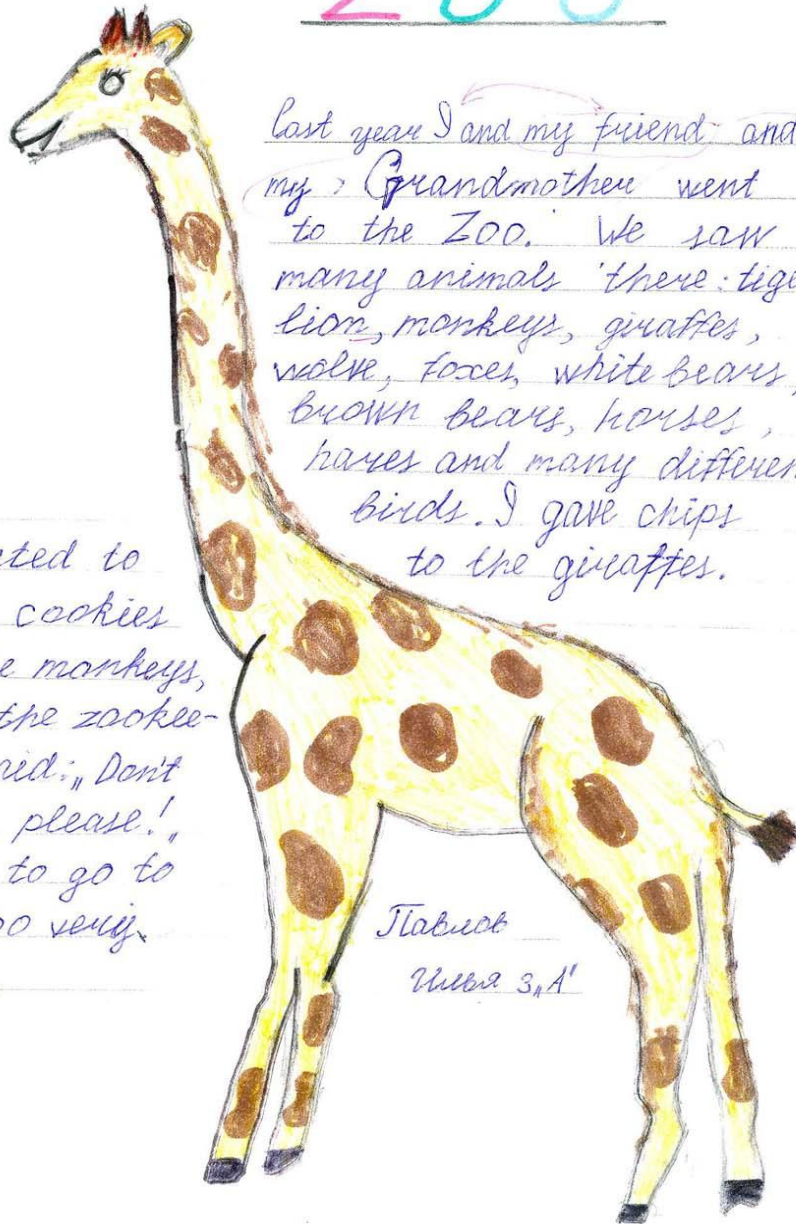 ZOO
Last year I and my friend and
my Grandmother went
to the ZOO. We saw
many animals there: tige
lion, monkeys, giraffes,
wolve, foxes, white bears,
brown bears, horses,
hares and many differen
birds. I gave chips
to the giraffes.
cted to
cookies
e monkeys,
the zookee-
aid: „Don't
please!„
to go to
oo very.
Павлов
Илья 3„А"